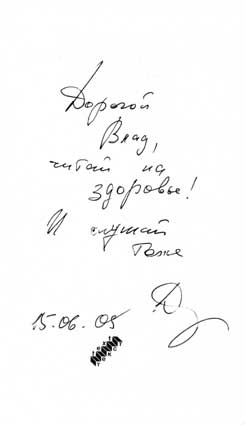 Дорогой
Влад,
читай на
здоровье!
И слушай
тоже
15.06.05